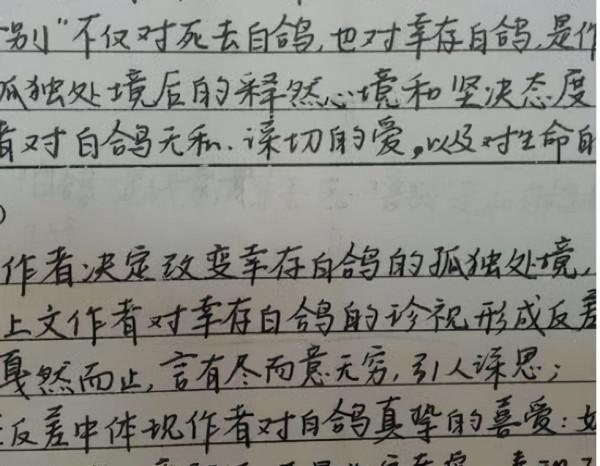 别"不仅对死去白鸽,也对幸存白鸽,是作
孤独处境后的释然心境和坚决态度
者对白鸽无私、深切的爱,以及对生命的
)
作者决定改变幸存白鸽的孤独处境,
上文作者对幸存白鸽的珍视形成反差
戛然而止,言有尽而意无穷,引人深思;
反差中体现作者对白鸽真挚的喜爱: